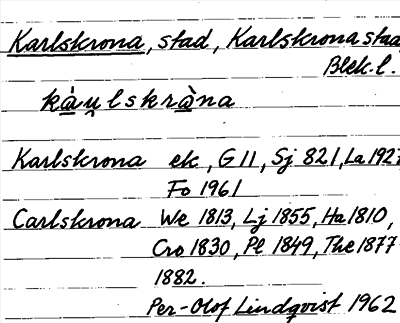 Karlskrona, stad, Karlskrona stad
Blek.l.
kà̱u̯lskrà̱na
Karlskrona ek, G11, Sj 821, La 1927
Fo 1961
Carlskrona We 1813, Lj 1855, Ha 1810,
Cro 1830, Pl 1849, The 1877-
1882.
Per-Olof Lindqvist 1962